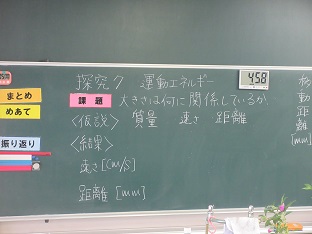 探究7 運動エネルギー
4:58
課題 大きさは何に関係しているか
まとめ
めあて
<仮説> 質量 速さ 距離
振り返り
<結果>
速さ[cm/s]
距離[mm]
動
距
離
[mm]